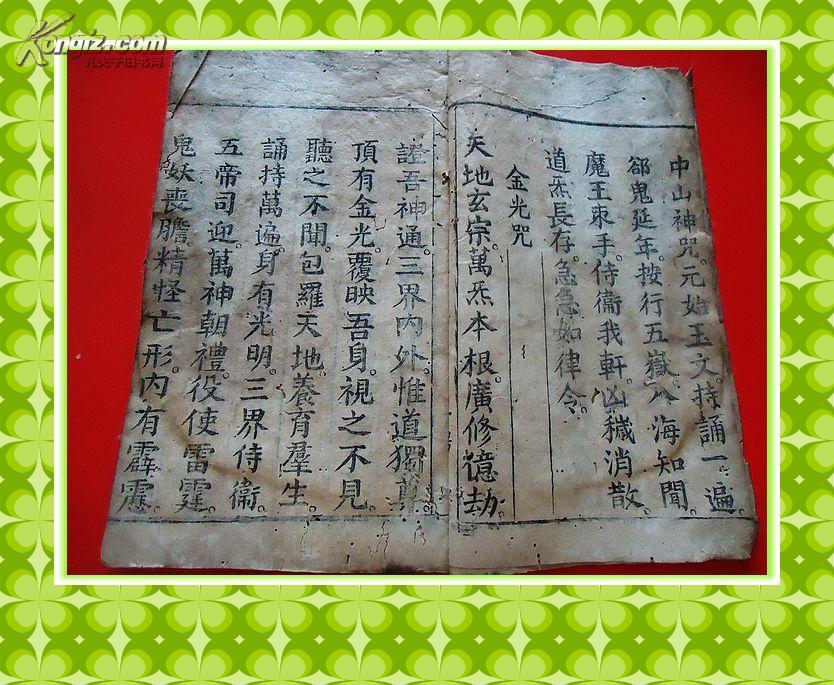 Kongfz.com
孔夫子旧书网
中山神咒。元始玉文。持誦一遍。
郤鬼延年。按行五嶽。八海知聞。
魔王束手。侍衞我軒。凶穢消散。
道炁長存。急急如律令。
金光咒
天地玄宗。萬炁本根。廣修億劫。
證吾神通。三界內外。惟道獨尊。
頂有金光。覆映吾身。視之不見。
聽之不聞。包羅天地。養育羣生。
誦持萬遍。身有光明。三界侍衞。
五帝司迎。萬神朝禮。役使雷霆。
鬼妖喪膽。精怪亡形。內有霹靂。